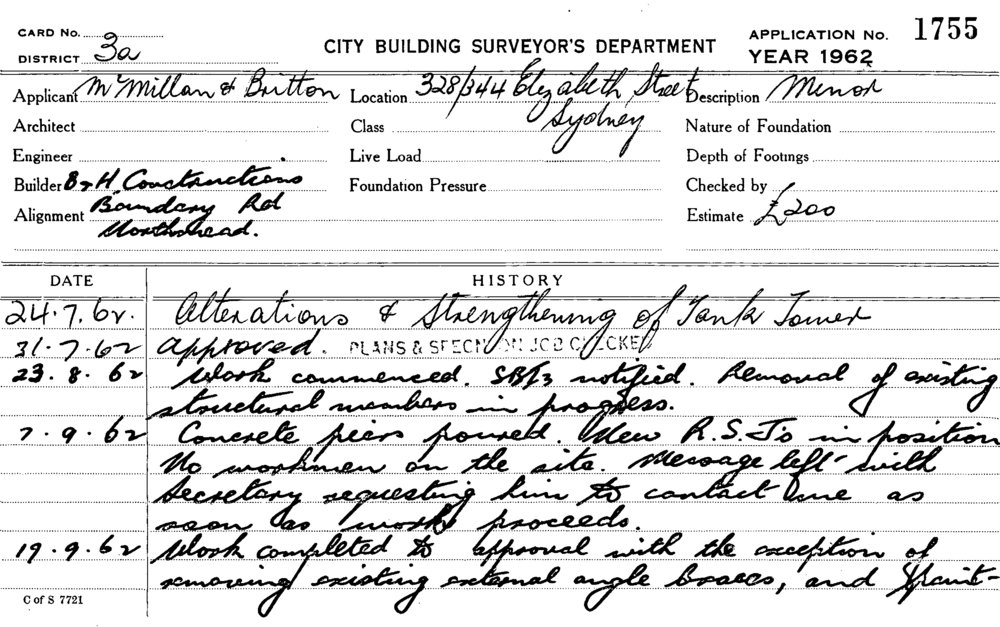 CARD No.
DISTRICT 3a
CITY BUILDING SURVEYOR'S DEPARTMENT
APPLICATION No. 1755
YEAR 1962
Applicant McMillan & Britton
Location 328/344 Elizabeth Street
Sydney
Description Minor
Architect
Class
Nature of Foundation
Engineer
Live Load
Depth of Footings
Builder B & H Constructions
Foundation Pressure
Checked by
Alignment Boundary Rd
Northmead.
Estimate £200
DATE
HISTORY
24.7.62. Alterations & Strengthening of Tank Tower
31.7.62 Approved. PLANS & SPECN ON JOB CHECKED
23.8.62 Work commenced. SB/3 notified. Removal of existing
structural members in progress.
7.9.62 Concrete piers poured. New R.S.Js in position
No workmen on the site. Message left with
Secretary requesting him to contact me as
soon as work proceeds.
19.9.62 Work completed to approval with the exception of
removing existing external angle braces, and paint-
C of S 7721